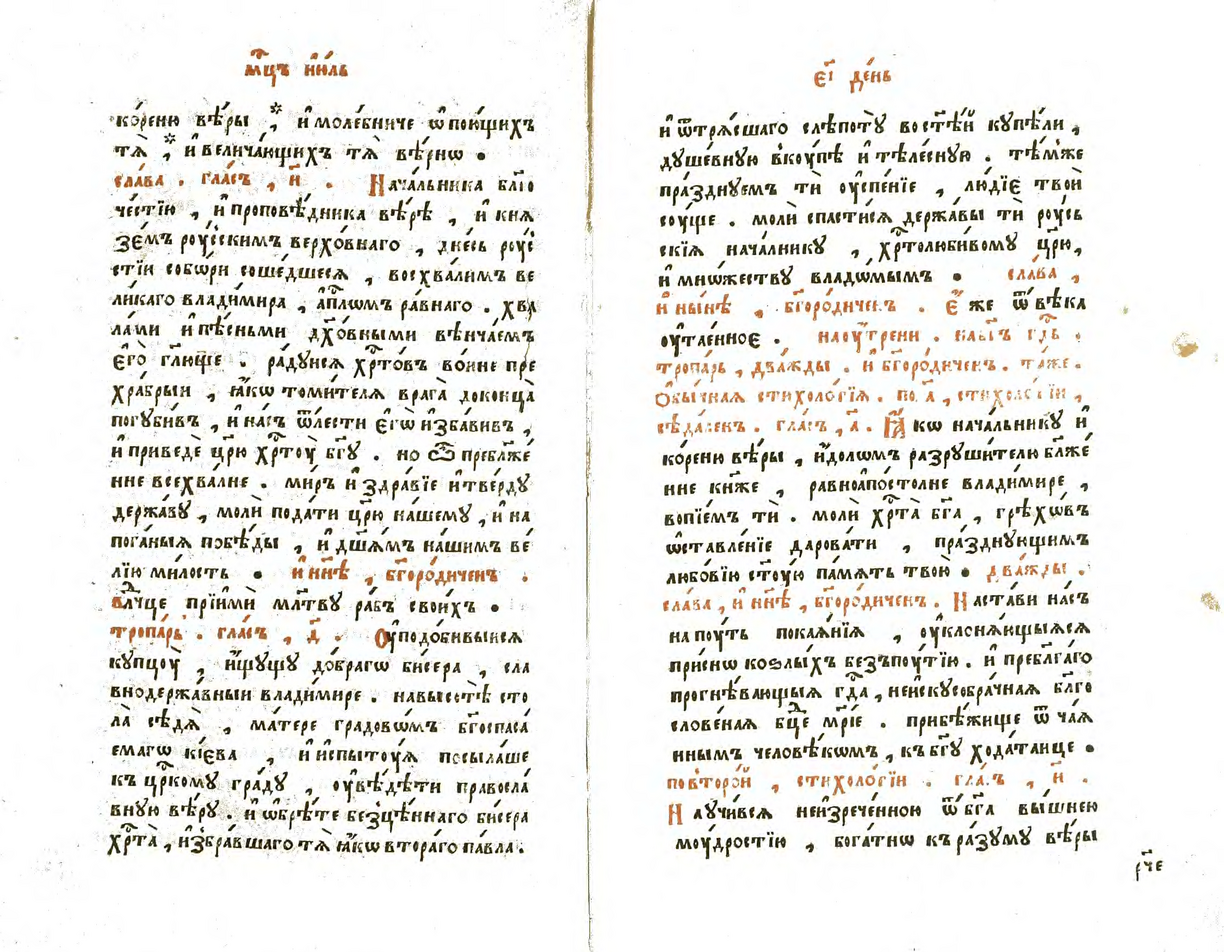 мц҃ъ ию́ль
ко́реню вѣ́ры , и҆ молебниче ѡ҆ пою́щихъ
тѧ̀ , и҆ велича́ющихъ тѧ̀ вѣ́рнѡ .
сла́ва . гла́съ , и҃ . Нача́льника бл҃го
че́стїю , и҆ проповѣ́дника вѣ́рѣ , и҆ кнѧ
зе́мъ роу́сскимъ верхо́внаго , дне́сь роу́с
стїи собо́ри соше́дшесѧ , восхва́лимъ ве
ли́каго влади́мира , а҆пⷭ҇лѡмъ ра́внаго . хва
ла́ми и҆ пѣ́сньми дх҃о́вными вѣнча́емъ
є҆го̀ гл҃юще . ра́дуисѧ хрⷭ҇то́въ во́ине пре
хра́брыи , ꙗ҆́кѡ томи́телѧ врага̀ доконца̀
погуби́въ , и҆ на́съ ѿ ле́сти є҆гѡ̀ и҆зба́вивъ ,
и҆ приведѐ цр҃ю хрⷭ҇тоу̀ бг҃у . но ѽ пребл҃же
нне всехва́лне . ми́ръ и҆ здра́вїе и҆ тве́рду
держа́ву , моли̑ пода́ти цр҃ю на́шему , и҆ на
пога́ныѧ побѣ́ды , и҆ дш҃а́мъ на́шим ве́
лїю ми́лость . и҆ нн҃ѣ , бг҃оро́диченъ .
влⷣчце прїими̑ мл҃тву ра́бъ свои́хъ .
тропа́рь . гла́съ , д҃ . Оу҆подо́бивыисѧ
купцоу̀ , и҆́щущу до́брагѡ би́сера , сла
внодержа́вныи влади́мире . на высотѣ̀ сто
ла̀ сѣдѧ̀ , ма́тере градовѡ́мъ бг҃оспаса́
емагѡ кі́ева , и҆ и҆спыто́уѧ посыла́ше
къ црⷭ҇кому гра́ду , оу҆вѣ́дѣти правосла́
вную вѣ́ру . и҆ ѡ҆брѣ́те безцѣ́ннаго би́сера
хрⷭ҇та̀ , и҆збра́вшаго тѧ̀ ꙗ҆́кѡ втора́го па́вла .
є҃і де́нь
и҆ ѿтрѧ́сшаго слѣпоту̀ во ст҃ѣ́й купѣ́ли ,
душе́вную вкоу́пѣ и҆ тѣле́сную . тѣ́мже
пра́зднуемъ тѝ оу҆спе́нїе , лю́дїе твои̑
соу́ще . моли̑ спасти́сѧ держа́вы тѝ роу́сь
скїѧ нача́лнику , хрⷭ҇толюби́вому цр҃ю,
и҆ мно́жеству владо́мымъ . сла́ва ,
и҆ ны́нѣ , бг҃оро́диченъ . Є҆́же ѿ вѣ́ка
оу҆та́енное . на оу́трени . на бг҃ъ гдⷭ҇ь .
тропа́рь , два́жды . и҆ бг҃оро́диченъ . та́же .
Обы́чнаѧ стихоло́гїѧ . по а҃ , стихоло́гїи ,
сѣда́ленъ . гла́съ , а҃ . Ꙗ҆́кѡ нача́льнику и҆
ко́реню вѣ́ры , и҆́доломъ разруши́телю бл҃же
нне кнѧ́же , равноапо́столне влади́мире ,
вопїе́мъ тѝ . моли̑ хрⷭ҇та̀ бг҃а , грѣхѡ́въ
ѡ҆ставле́нїе дарова́ти , пра́зднующимъ
любо́вїю ст҃у́ю па́мѧть твою̀ . два́жды .
сла́ва , и҆ нн҃ѣ , бг҃оро́диченъ . Наста́ви на́съ
на поу́ть покаѧ́нїѧ , оу҆клонѧ́ющыѧсѧ
при́снѡ ко ѕлы́хъ безъпоу́тїю . и҆ пребл҃га́го
прогнѣ́вающыѧ гдⷭ҇а , неискусобра́чнаѧ бл҃го
слове́наѧ бц҃е мр҃і́е . прибѣ́жище ѿ чаѧ́
ннымъ человѣ́комъ , къ бг҃у хода́таице .
по второ́й , стихоло́гїи . гла́съ , и҃ .
Научи́всѧ неизрече́нною ѿ бг҃а вы́шнею
моу́дростїю , бога́тнѡ къ ра́зуму вѣ́ры
рч҃е